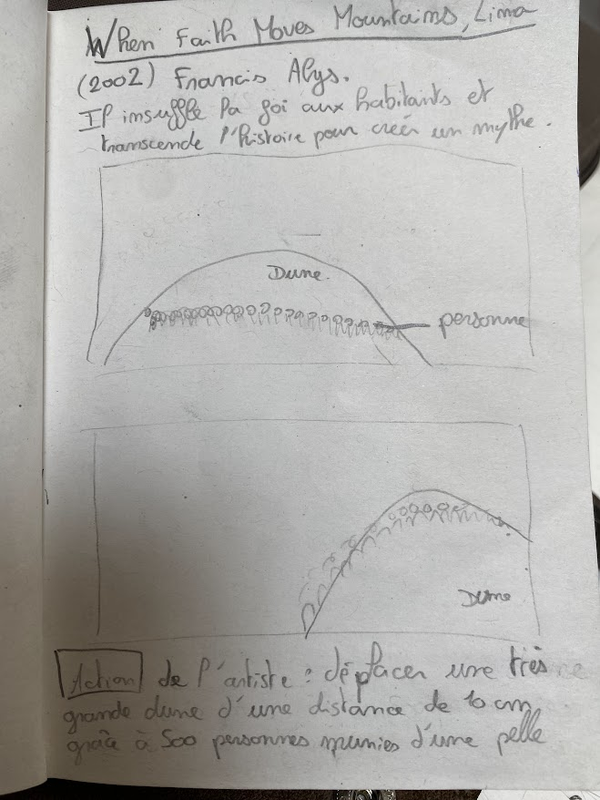 When Faith Moves Mountains, Lima
(2002) Francis Alys.
Il insuffle la foi aux habitants et
transcende l'histoire pour créer un mythe.
Dune
personne
Dune
Action de l'artiste : déplacer une très
grande dune d'une distance de 10 cm
grâce à 500 personnes munies d'une pelle